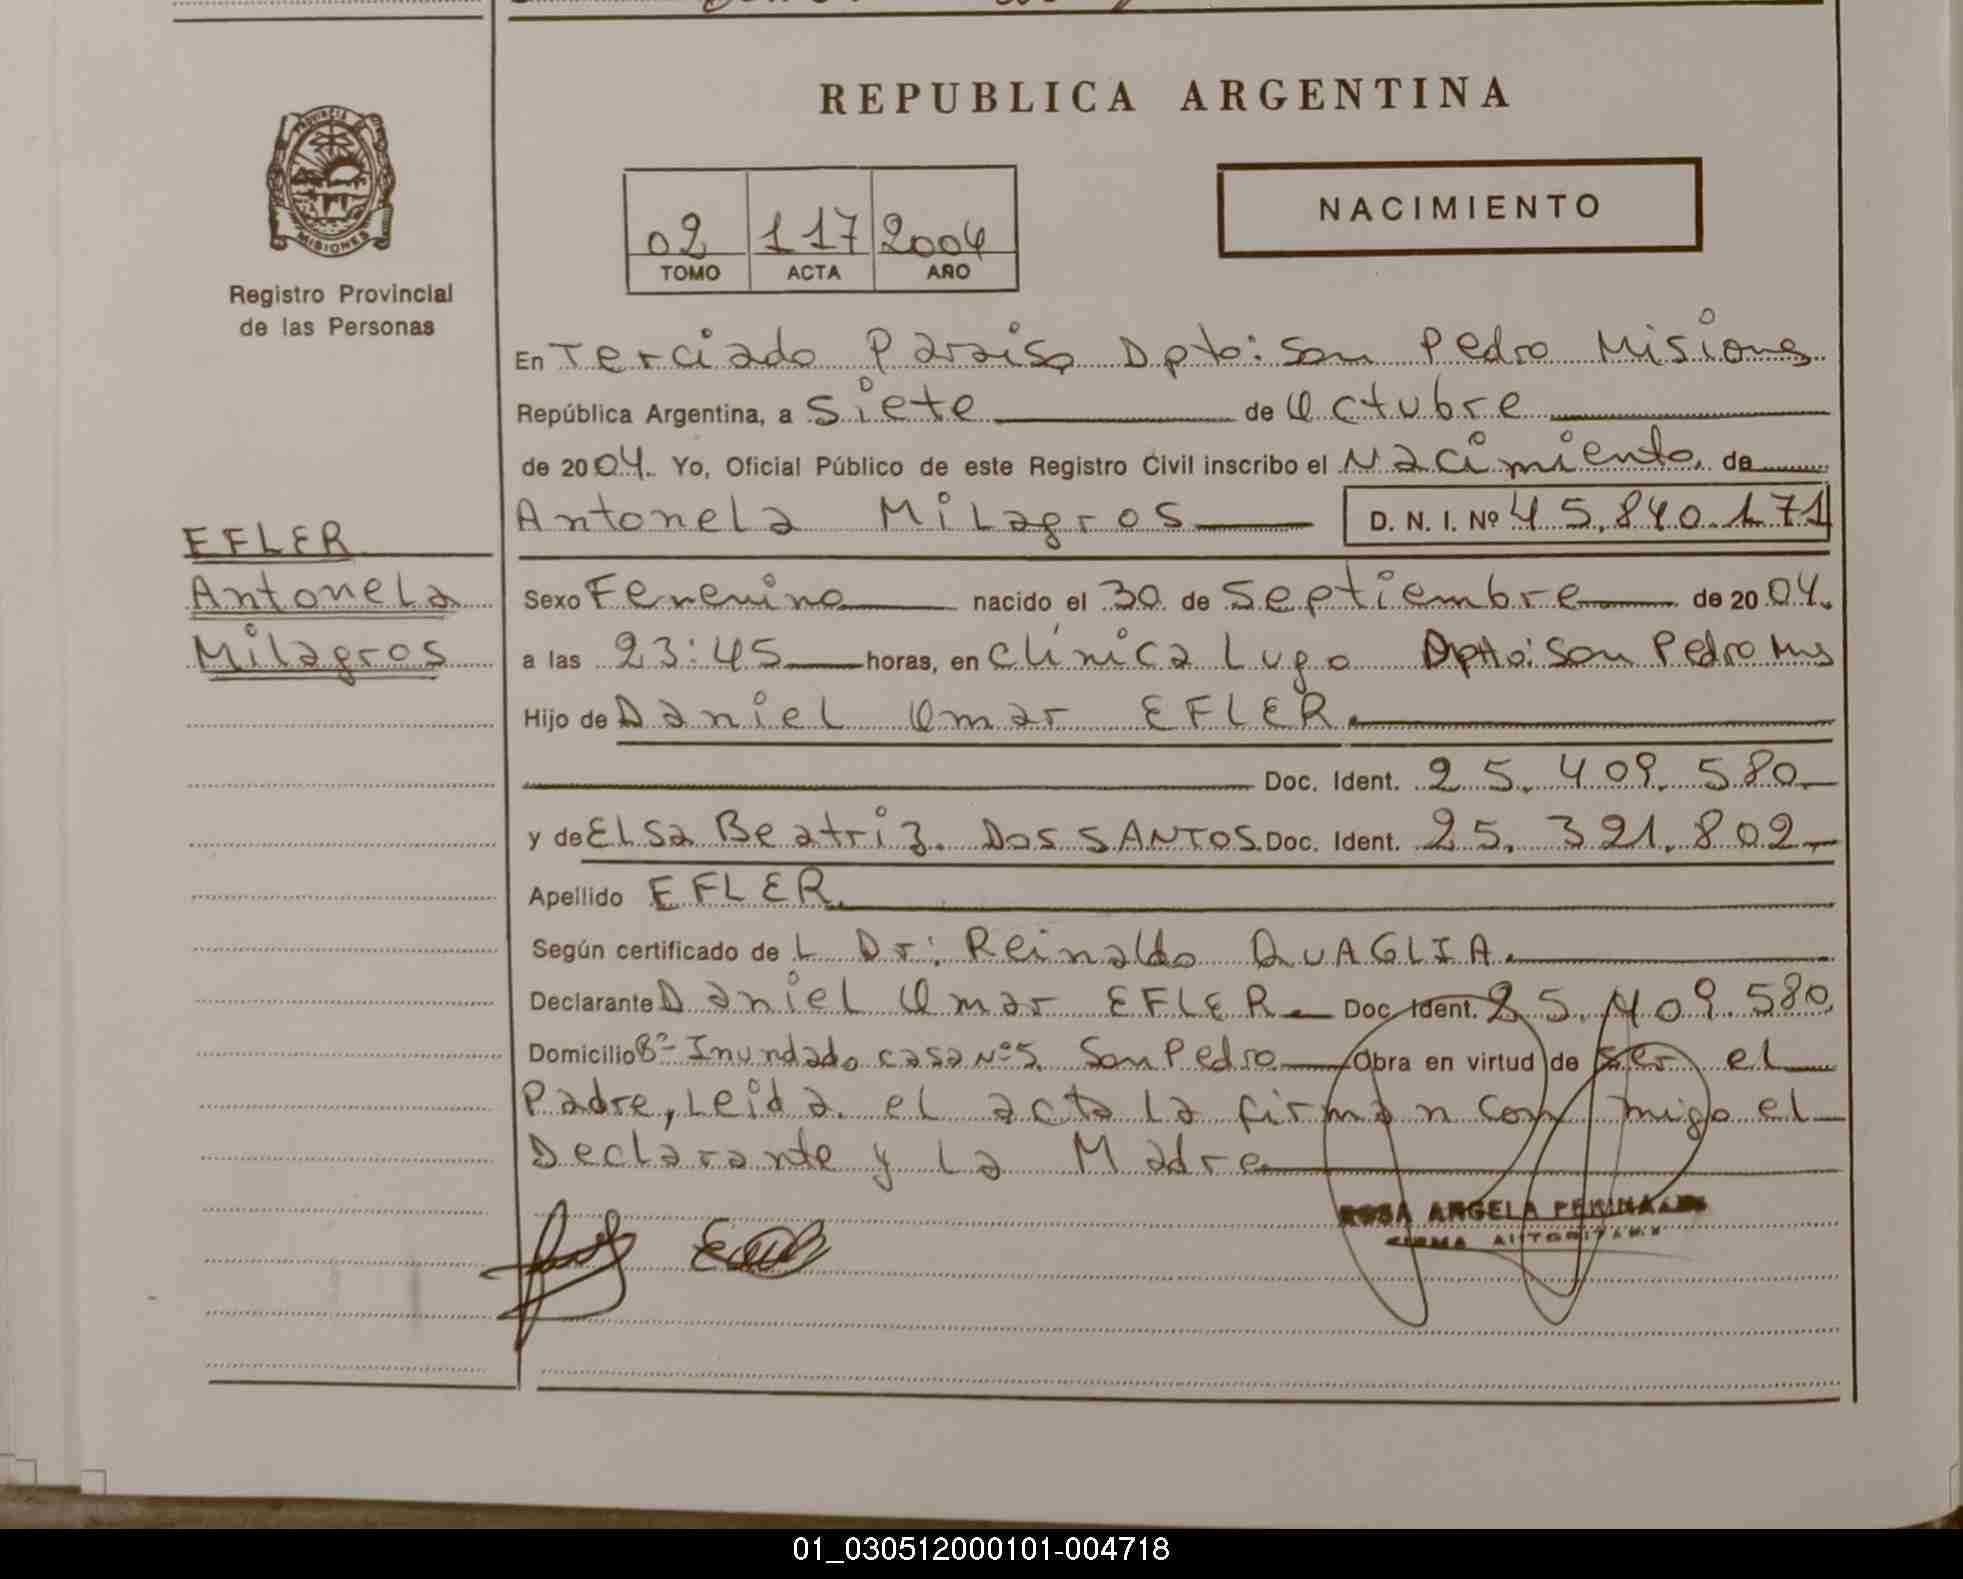 REPUBLICA ARGENTINA
PROVINCIA DE
MISIONES
Registro Provincial
de las Personas
02 117 2004
TOMO ACTA AÑO
NACIMIENTO
En Terciado Paraiso Dpto: San Pedro Misiones
República Argentina, a siete de Octubre
de 2004. Yo, Oficial Público de este Registro Civil inscribo el Nacimiento de
Antonela Milagros D. N. I. Nº 45.840.171
EFLER
Antonela
Milagros
Sexo Femenino nacido el 30 de Septiembre de 2004.
a las 23:45 horas, en Clínica Lugo Dpto: San Pedro Mns
Hijo de Daniel Omar EFLER.
Doc. Ident. 25.409.580
y de Elsa Beatriz DOS SANTOS Doc. Ident. 25.321.802
Apellido EFLER.
Según certificado de L Dr: Reinaldo QUAGLIA.
Declarante Daniel Omar EFLER Doc. Ident. 25.409.580
Domicilio Bº Inundado casa Nº 5. San Pedro Obra en virtud de ser el
Padre, Leida el acta la firman con migo el
Declarante y La Madre
ROSA ANGELA
FIRMA AUTORIZADA
01_030512000101-004718